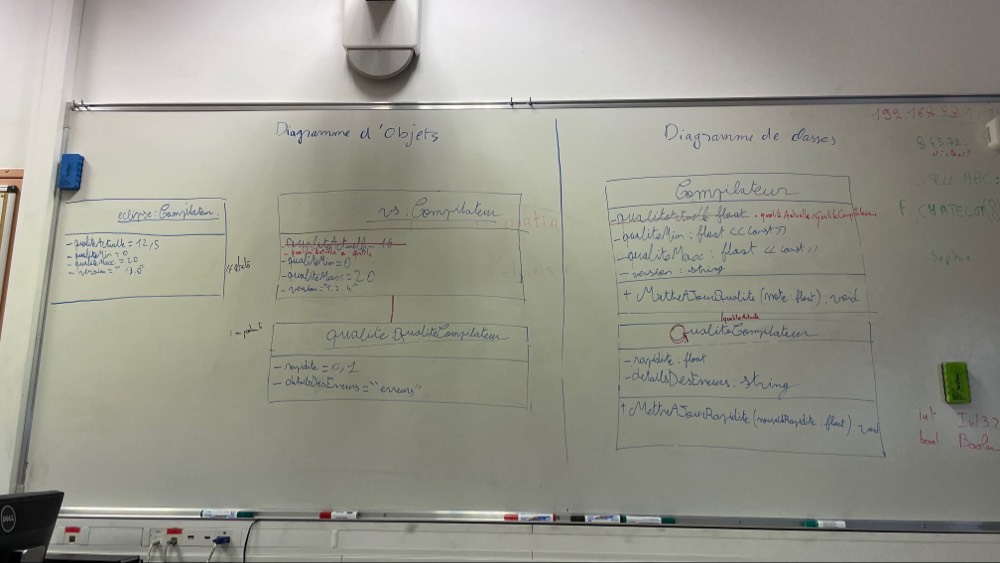 Diagramme d'Objets
eclipse : Compilateur
- qualiteActuelle = 12,5
- qualiteMin = 0
- qualiteMax = 20
- version =
vs : Compilateur
- qualiteActuelle = 16
- qualiteMin = 0
- qualiteMax = 20
- version = "1.2.4"
qualite QualiteCompilateur
- rapidite = 0,1
- detailsDesErreurs = "erreurs"
Diagramme de classes
Compilateur
- qualiteActuelle float - qualiteActuelle : QualiteCompilateur
- qualiteMin : float << const >>
- qualiteMax : float << const >>
- version : string
+ MettreAJourQualite (note float) : void
qualiteActuelle
QualiteCompilateur
- rapidite : float
- detailsDesErreurs : string
+ MettreAJourRapidite (nouvelleRapidite float) : void
192.168.
F. CHATELOT
Sophie
int Int32
bool Boolean
DELL